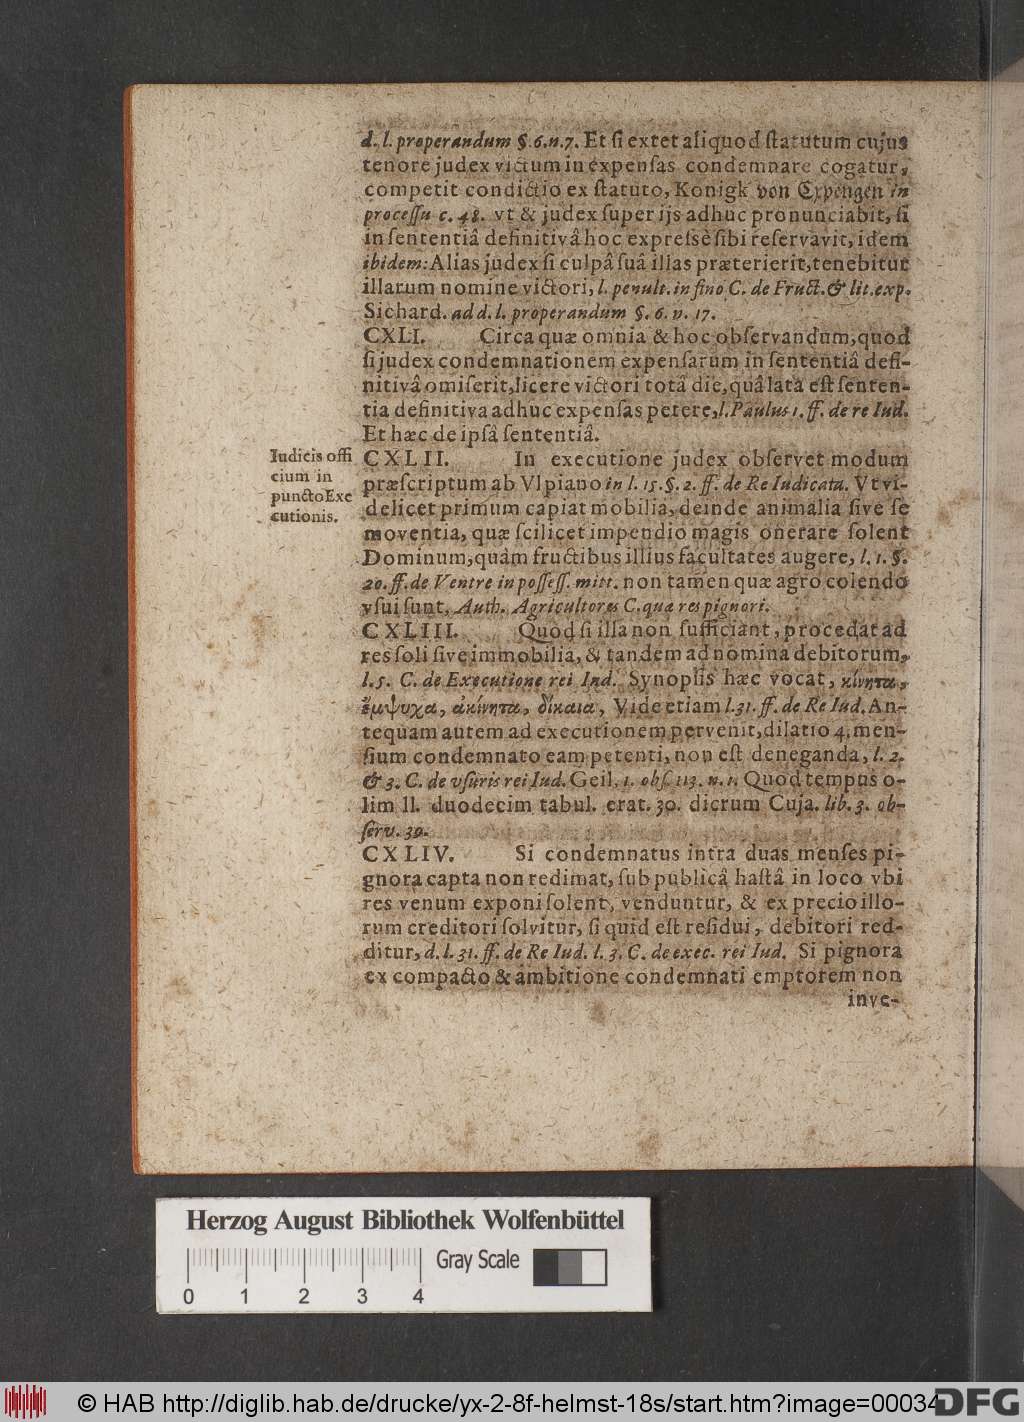 d. l. properandum §. 6. n. 7. Et ſi extet aliquod ſtatutum cujus
tenore judex victum in expenſas condemnare cogatur,
competit condictio ex ſtatuto, Konigk von Expenſen in
proceſſu c. 48. vt & judex ſuper ijs adhuc pronunciabit, ſi
in ſententiâ definitivâ hoc expreſsè ſibi reſervavit, idem
ibidem: Alias judex ſi culpâ ſuâ illas præterierit, tenebitur
illarum nomine victori, l. penult. in fino C. de Fruct. & lit. exp.
Sichard. ad d. l. properandum §. 6. n. 17.
CXLI. Circa quæ omnia & hoc obſervandum, quod
ſi judex condemnationem expenſarum in ſententiâ defi-
nitivâ omiſerit, licere victori totâ die, quâ lata eſt ſenten-
tia definitiva adhuc expenſas petere, l. Paulus 1. ff. de re Iud.
Et hæc de ipſâ ſententiâ.
Iudicis offi
cium in
puncto Exe
cutionis.
CXLII. In executione judex obſervet modum
præſcriptum ab Vlpiano in l. 15. §. 2. ff. de Re Iudicata. Vt vi-
delicet primum capiat mobilia, deinde animalia ſive ſe
moventia, quæ ſcilicet impendio magis onerare ſolent
Dominum, quàm fructibus illius facultates augere, l. 1. §.
20. ff. de Ventre in poſſeſſ. mitt. non tamen quæ agro colendo
vſui ſunt, Auth. Agricultores C. quæ res pignori.
CXLIII. Quod ſi illa non ſufficiant, procedat ad
res ſoli ſive immobilia, & tandem ad nomina debitorum,
l. 5. C. de Executione rei Iud. Synopſis hæc vocat, κίνητα,
ἔμψυχα, ἀκίνητα, δίκαια, Vide etiam l. 31. ff. de Re Iud. An-
tequam autem ad executionem pervenit, dilatio 4. men-
ſium condemnato eam petenti, non eſt deneganda, l. 2.
& 3. C. de vſuris rei Iud. Geil. 1. obſ. 113. n. 1. Quod tempus o-
lim ll. duodecim tabul. erat. 30. dierum Cuja. lib. 3. ob-
ſerv. 39.
CXLIV. Si condemnatus intra duas menſes pi-
gnora capta non redimat, ſub publicâ haſtâ in loco vbi
res venum exponi ſolent, venduntur, & ex precio illo-
rum creditori ſolvitur, ſi quid eſt reſidui, debitori red-
ditur, d. l. 31. ff. de Re Iud. l. 3. C. de exec. rei Iud. Si pignora
ex compacto & ambitione condemnati emptorem non
inve-
Herzog August Bibliothek Wolfenbüttel
Gray Scale
0 1 2 3 4
© HAB http://diglib.hab.de/drucke/yx-2-8f-helmst-18s/start.htm?image=00034
DFG